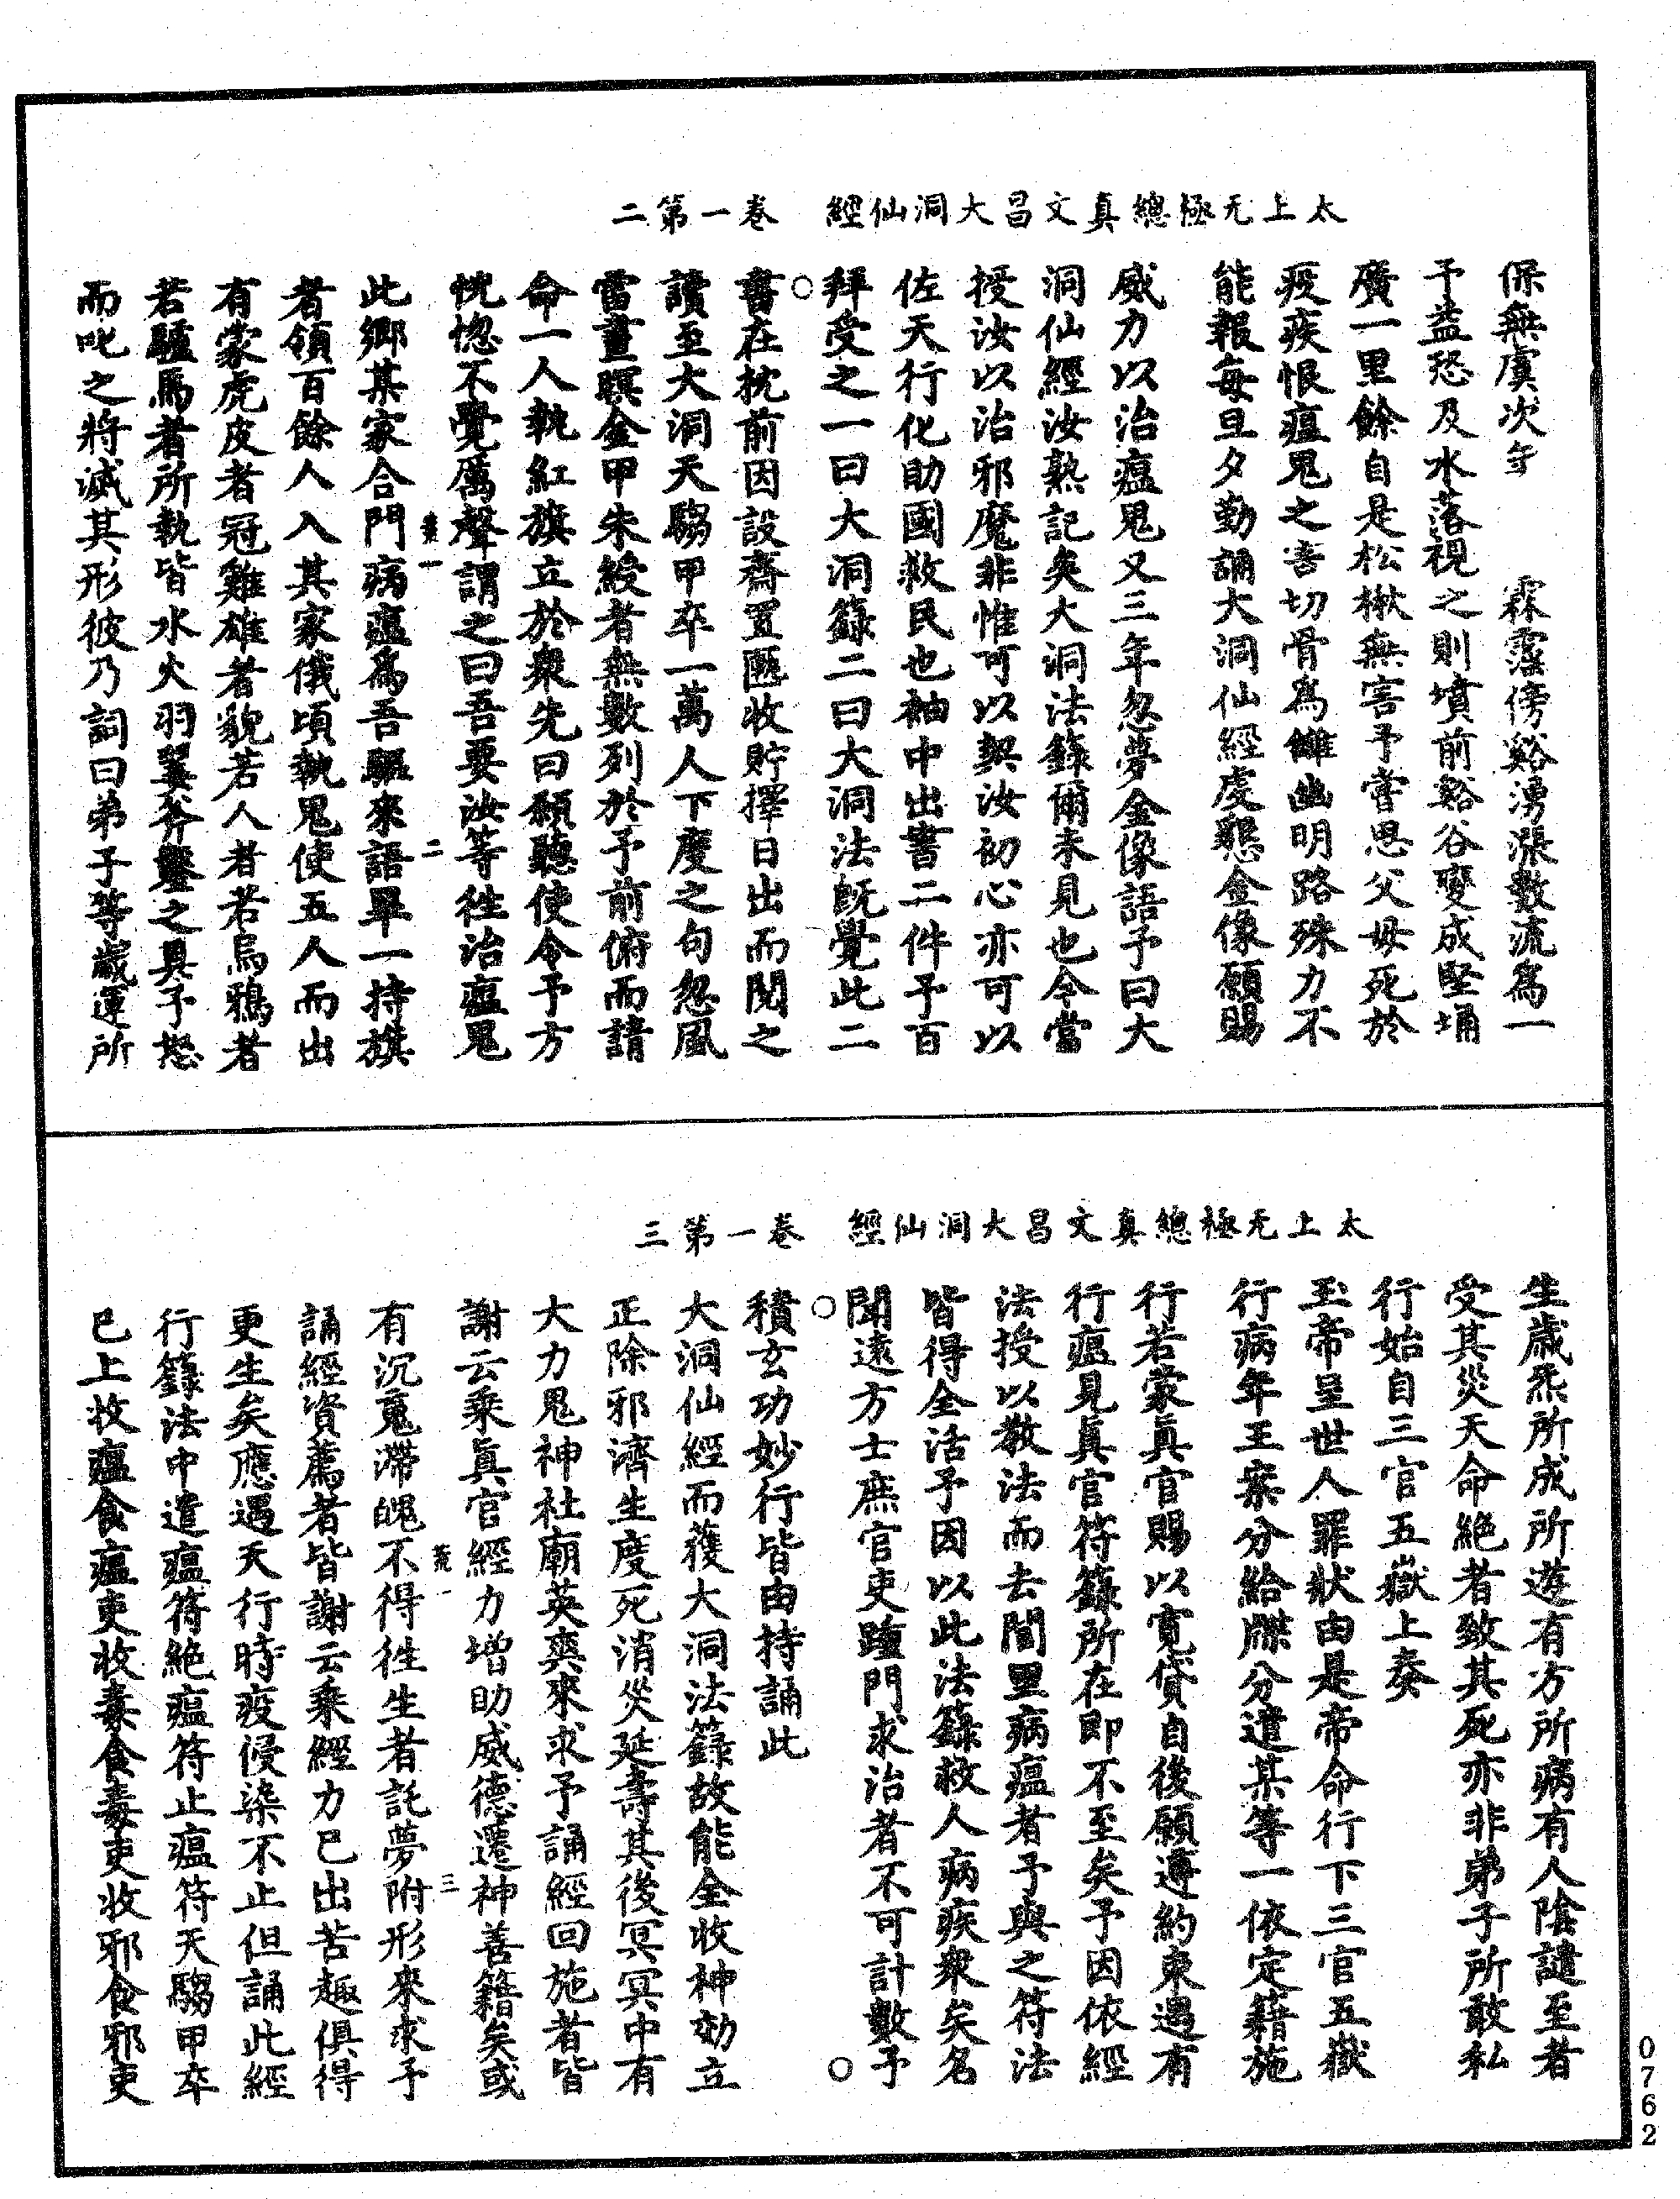 太上无極總真文昌大洞仙經　卷一第二
保無虞次年　　霖霪傍谿湧漲數流爲一
予益恐及水落視之則墳前谿谷變成堅埇
廣一里餘自是松楸無害予嘗思父母死於
疫疾恨瘟鬼之害切骨爲讎幽明路殊力不
能報每旦夕勤誦大洞仙經虔懇金像願賜
威力以治瘟鬼又三年忽夢金像語予曰大
洞仙經汝熟記矣大洞法籙爾未見也今當
授汝以治邪魔非惟可以契汝初心亦可以
佐天行化助國救民也袖中出書二件予百
拜受之一曰大洞籙二曰大洞法既覺此二
○書在枕前因設齋置匭收貯擇日出而閱之
讀至大洞天騶甲卒一萬人下度之句忽風
雷晝暝金甲朱綬者無數列於予前俯而請
命一人執紅旗立於衆先曰願聽使令予方
恍惚不覺厲聲謂之曰吾要汝等往治瘟鬼
荒一　二
此鄉某家合門病瘟爲吾驅來語畢一持旗
者領百餘人入其家俄頃執鬼使五人而出
有蒙虎皮者冠雞雄者貌若人者若烏鴉者
若驢馬者所執皆水火羽翼斧鑿之具予怒
而叱之將滅其形彼乃詞曰弟子等歲運所
太上无極總真文昌大洞仙經　卷一第三
生歲炁所成所遊有方所病有人陰譴至者
受其災天命絕者致其死亦非弟子所敢私
行始自三官五嶽上奏
玉帝呈世人罪狀由是帝命行下三官五嶽
行病年王案分給牒分遣某等一依定籍施
行若蒙眞官賜以寬貸自後願遵約束遇有
行瘟見眞官符籙所在即不至矣予因依經
法授以教法而去閭里病瘟者予與之符法
皆得全活予因以此法籙救人病疾衆矣名
聞遠方士庶官吏踵門求治者不可計數予○
○積玄功妙行皆由持誦此
大洞仙經而獲大洞法籙故能全收神効立
正除邪濟生度死消災延壽其後冥冥中有
大力鬼神社廟英爽來求予誦經回施者皆
謝云乘眞官經力增助威德遷神善籍矣或
荒一　三
有沉魂滯魄不得往生者託夢附形來求予
誦經資薦者皆謝云乘經力已出苦趣俱得
更生矣應遇天行時疫侵染不止但誦此經
行籙法中遣瘟符絕瘟符止瘟符天騶甲卒
已上收瘟食瘟吏收毒食毒吏收邪食邪吏
0762